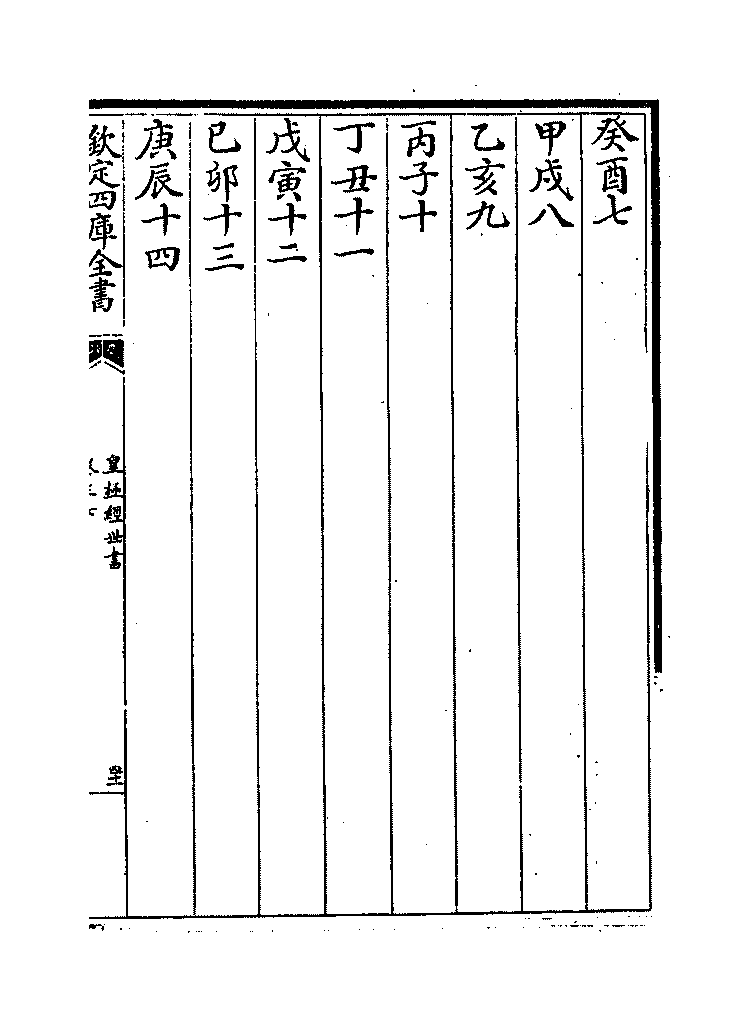 癸酉七
甲戌八
乙亥九
丙子十
丁丑十一
戊寅十二
己卯十三
庚辰十四
欽定四庫全書
皇極經世書